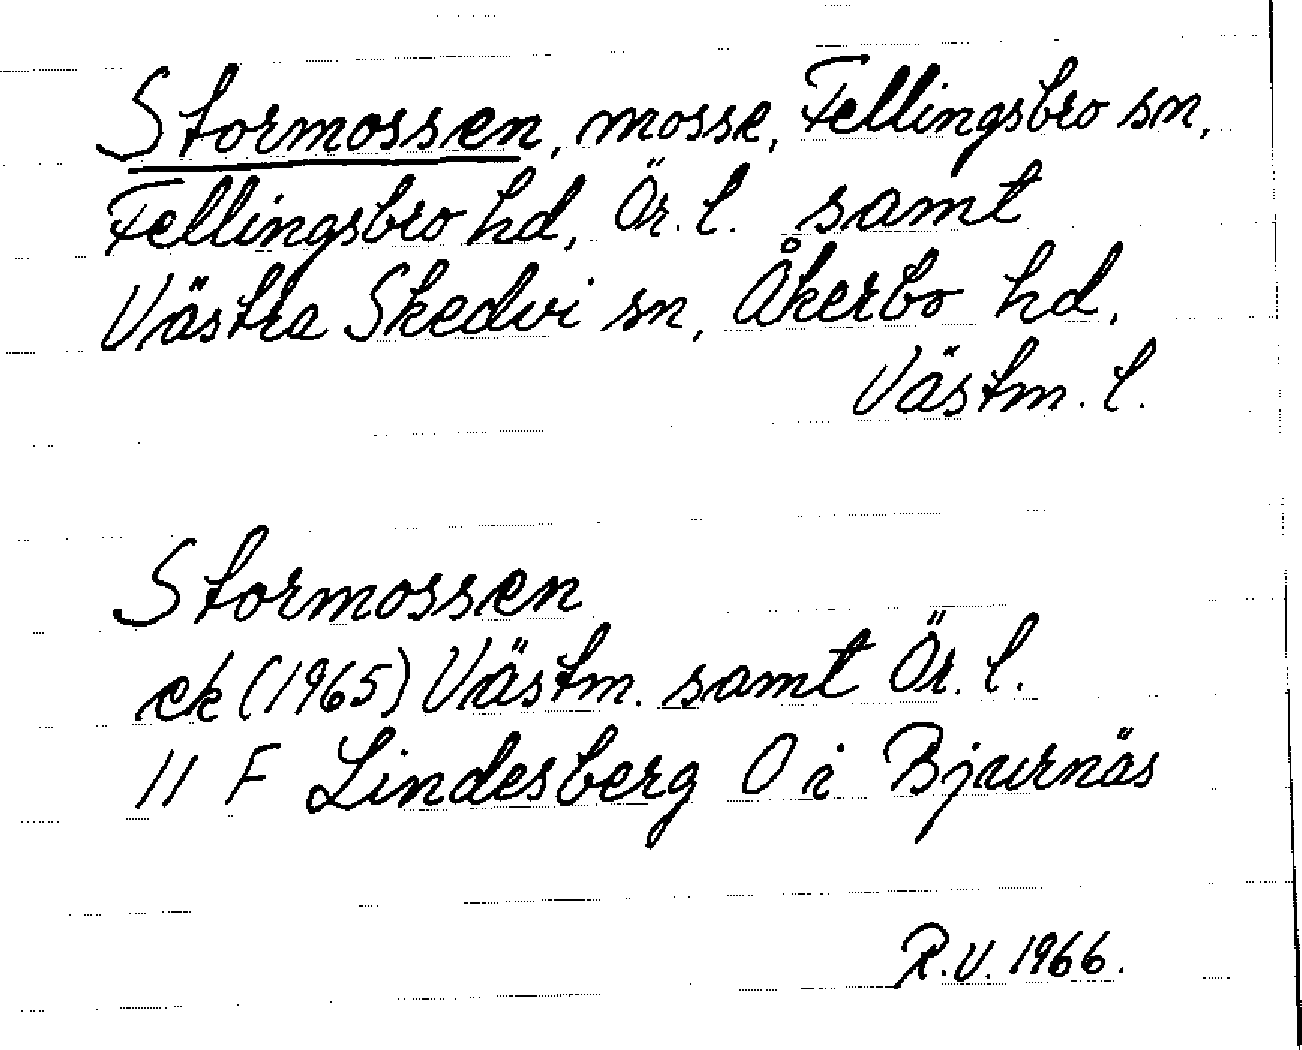 Stormossen, mosse, Fellingsbro sn,
Fellingsbro hd, Ör. l. samt
Västra Skedvi sn, Åkerbo hd,
Västm. l.
Stormossen
ek (1965) Västm. samt Ör. l.
11 F Lindesberg O i Bjurnäs
R.V. 1966.